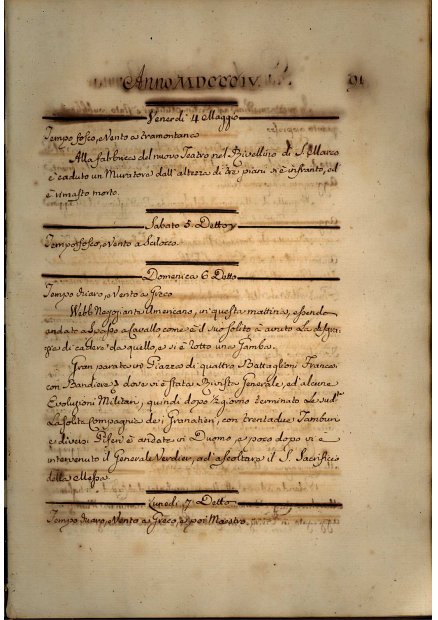 Anno MDCCCIV.
91
Venerdi 4 Maggio
Tempo fosco, e Vento a tramontana
Alla fabbrica del nuovo Teatro nel Rivellino di S. Marco
è caduto un Muratore dall'altezza di tre piani si è infranto, ed
è rimasto morto.
Sabato 5. Detto
Tempo fosco, e Vento a Scilocco.
Domenica 6 Detto
Tempo chiaro, e Vento a Greco
Webb Negoziante Americano, in questa mattina, essendo
andato a spasso a Cavallo come è il suo solito è avuto la disgra
zia di cadere da quello, e si è rotto una Gamba.
Gran parata in Piazza di quattro Battaglioni Francesi
con Bandiere dove vi è stata Rivista Generale, ed alcune
Evoluzioni Militari, quindi dopo ½ giorno terminato
la solita Compagnia dei Granatieri, con trentadue Tamburi
e diversi Pifferi è andata in Duomo, e poco dopo vi è
intervenuto il Generale Verdier, ad ascoltare il S. Sacrificio
della Messa.
Lunedi 7 Detto
Tempo chiaro, e Vento a Greco, e poi Maestro.